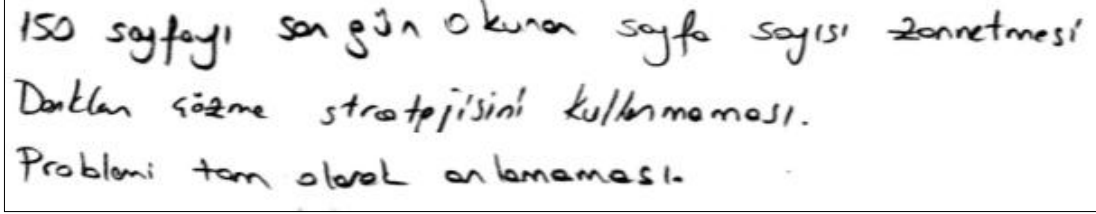 150 sayfayı son gün okunan sayfa sayısı zannetmesi
Denklem çözme stratejisini kullanmaması.
Problemi tam olarak anlamaması.